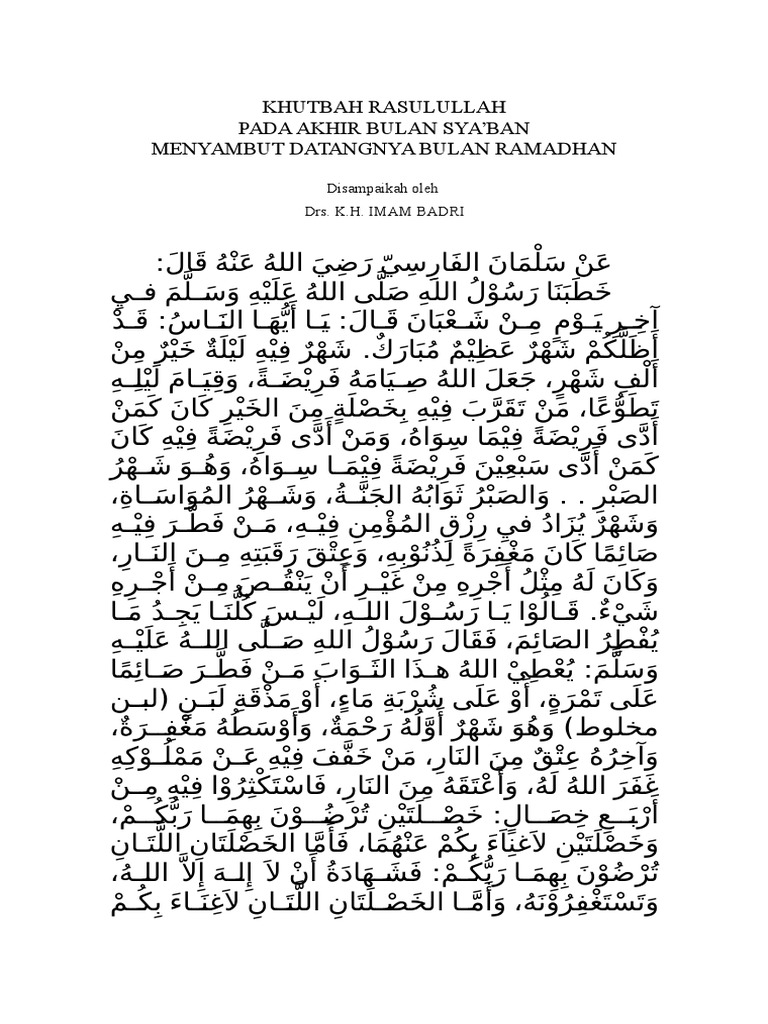 KHUTBAH RASULULLAH
PADA AKHIR BULAN SYA’BAN
MENYAMBUT DATANGNYA BULAN RAMADHAN
Disampaikah oleh
Drs. K.H. IMAM BADRI
عَنْ سَلْمَانَ الفَارِسِيّ رَضِيَ اللهُ عَنْهُ قَالَ:
خَطَبَنَا رَسُوْلُ اللهِ صَلَّى اللهُ عَلَيْهِ وَسَلَّمَ فِي
آخِرِ يَوْمٍ مِنْ شَعْبَانَ قَالَ: يَا أَيُّهَا النَاسُ: قَدْ
أَظَلَّكُمْ شَهْرٌ عَظِيْمٌ مُبَارَكٌ. شَهْرٌ فِيْهِ لَيْلَةٌ خَيْرٌ مِنْ
أَلْفِ شَهْرٍ، جَعَلَ اللهُ صِيَامَهُ فَرِيْضَةً، وَقِيَامَ لَيْلِهِ
تَطَوُّعًا، مَنْ تَقَرَّبَ فِيْهِ بِخَصْلَةٍ مِنَ الخَيْرِ كَانَ كَمَنْ
أَدَّى فَرِيْضَةً فِيْمَا سِوَاهُ، وَمَنْ أَدَّى فَرِيْضَةً فِيْهِ كَانَ
كَمَنْ أَدَّى سَبْعِيْنَ فَرِيْضَةً فِيْمَا سِوَاهُ، وَهُوَ شَهْرُ
الصَبْرِ . . وَالصَبْرُ ثَوَابُهُ الجَنَّةُ، وَشَهْرُ المُوَاسَاةِ،
وَشَهْرٌ يُزَادُ في رِزْقِ المُؤْمِنِ فِيْهِ، مَنْ فَطَّرَ فِيْهِ
صَائِمًا كَانَ مَغْفِرَةً لِذُنُوْبِهِ، وَعِتْقَ رَقَبَتِهِ مِنَ النَارِ،
وَكَانَ لَهُ مِثْلُ أَجْرِهِ مِنْ غَيْرِ أَنْ يَنْقُصَ مِنْ أَجْرِهِ
شَيْءٌ. قَالُوْا يَا رَسُوْلَ اللهِ، لَيْسَ كُلُّنَا يَجِدُ مَا
يُفْطِرُ الصَائِمَ، فَقَالَ رَسُوْلُ اللهِ صَلَّى اللهُ عَلَيْهِ
وَسَلَّمَ: يُعْطِيْ اللهُ هذَا الثَوَابَ مَنْ فَطَّرَ صَائِمًا
عَلَى تَمْرَةٍ، أَوْ عَلَى شُرْبَةِ مَاءٍ، أَوْ مَذْقَةِ لَبَنٍ (لبن
مخلوط) وَهُوَ شَهْرٌ أَوَّلُهُ رَحْمَةٌ، وَأَوْسَطُهُ مَغْفِرَةٌ،
وَآخِرُهُ عِتْقٌ مِنَ النَارِ، مَنْ خَفَّفَ فِيْهِ عَنْ مَمْلُوْكِهِ
غَفَرَ اللهُ لَهُ، وَأَعْتَقَهُ مِنَ النَارِ، فَاسْتَكْثِرُوْا فِيْهِ مِنْ
أَرْبَعِ خِصَالٍ: خَصْلَتَيْنِ تُرْضُوْنَ بِهِمَا رَبُّكُمْ،
وَخَصْلَتَيْنِ لاَغِنِاَءَ بِكُمْ عَنْهُمَا، فَأَمَّا الخَصْلَتَانِ اللَّتَانِ
تُرْضُوْنَ بِهِمَا رَبُّكُمْ: فَشَهَادَةُ أَنْ لاَ إِلهَ إِلاَّ اللهُ،
وَتَسْتَغْفِرُوْنَهُ، وَأَمَّا الخَصْلَتَانِ اللَّتَانِ لاَغِنَاءَ بِكُمْ